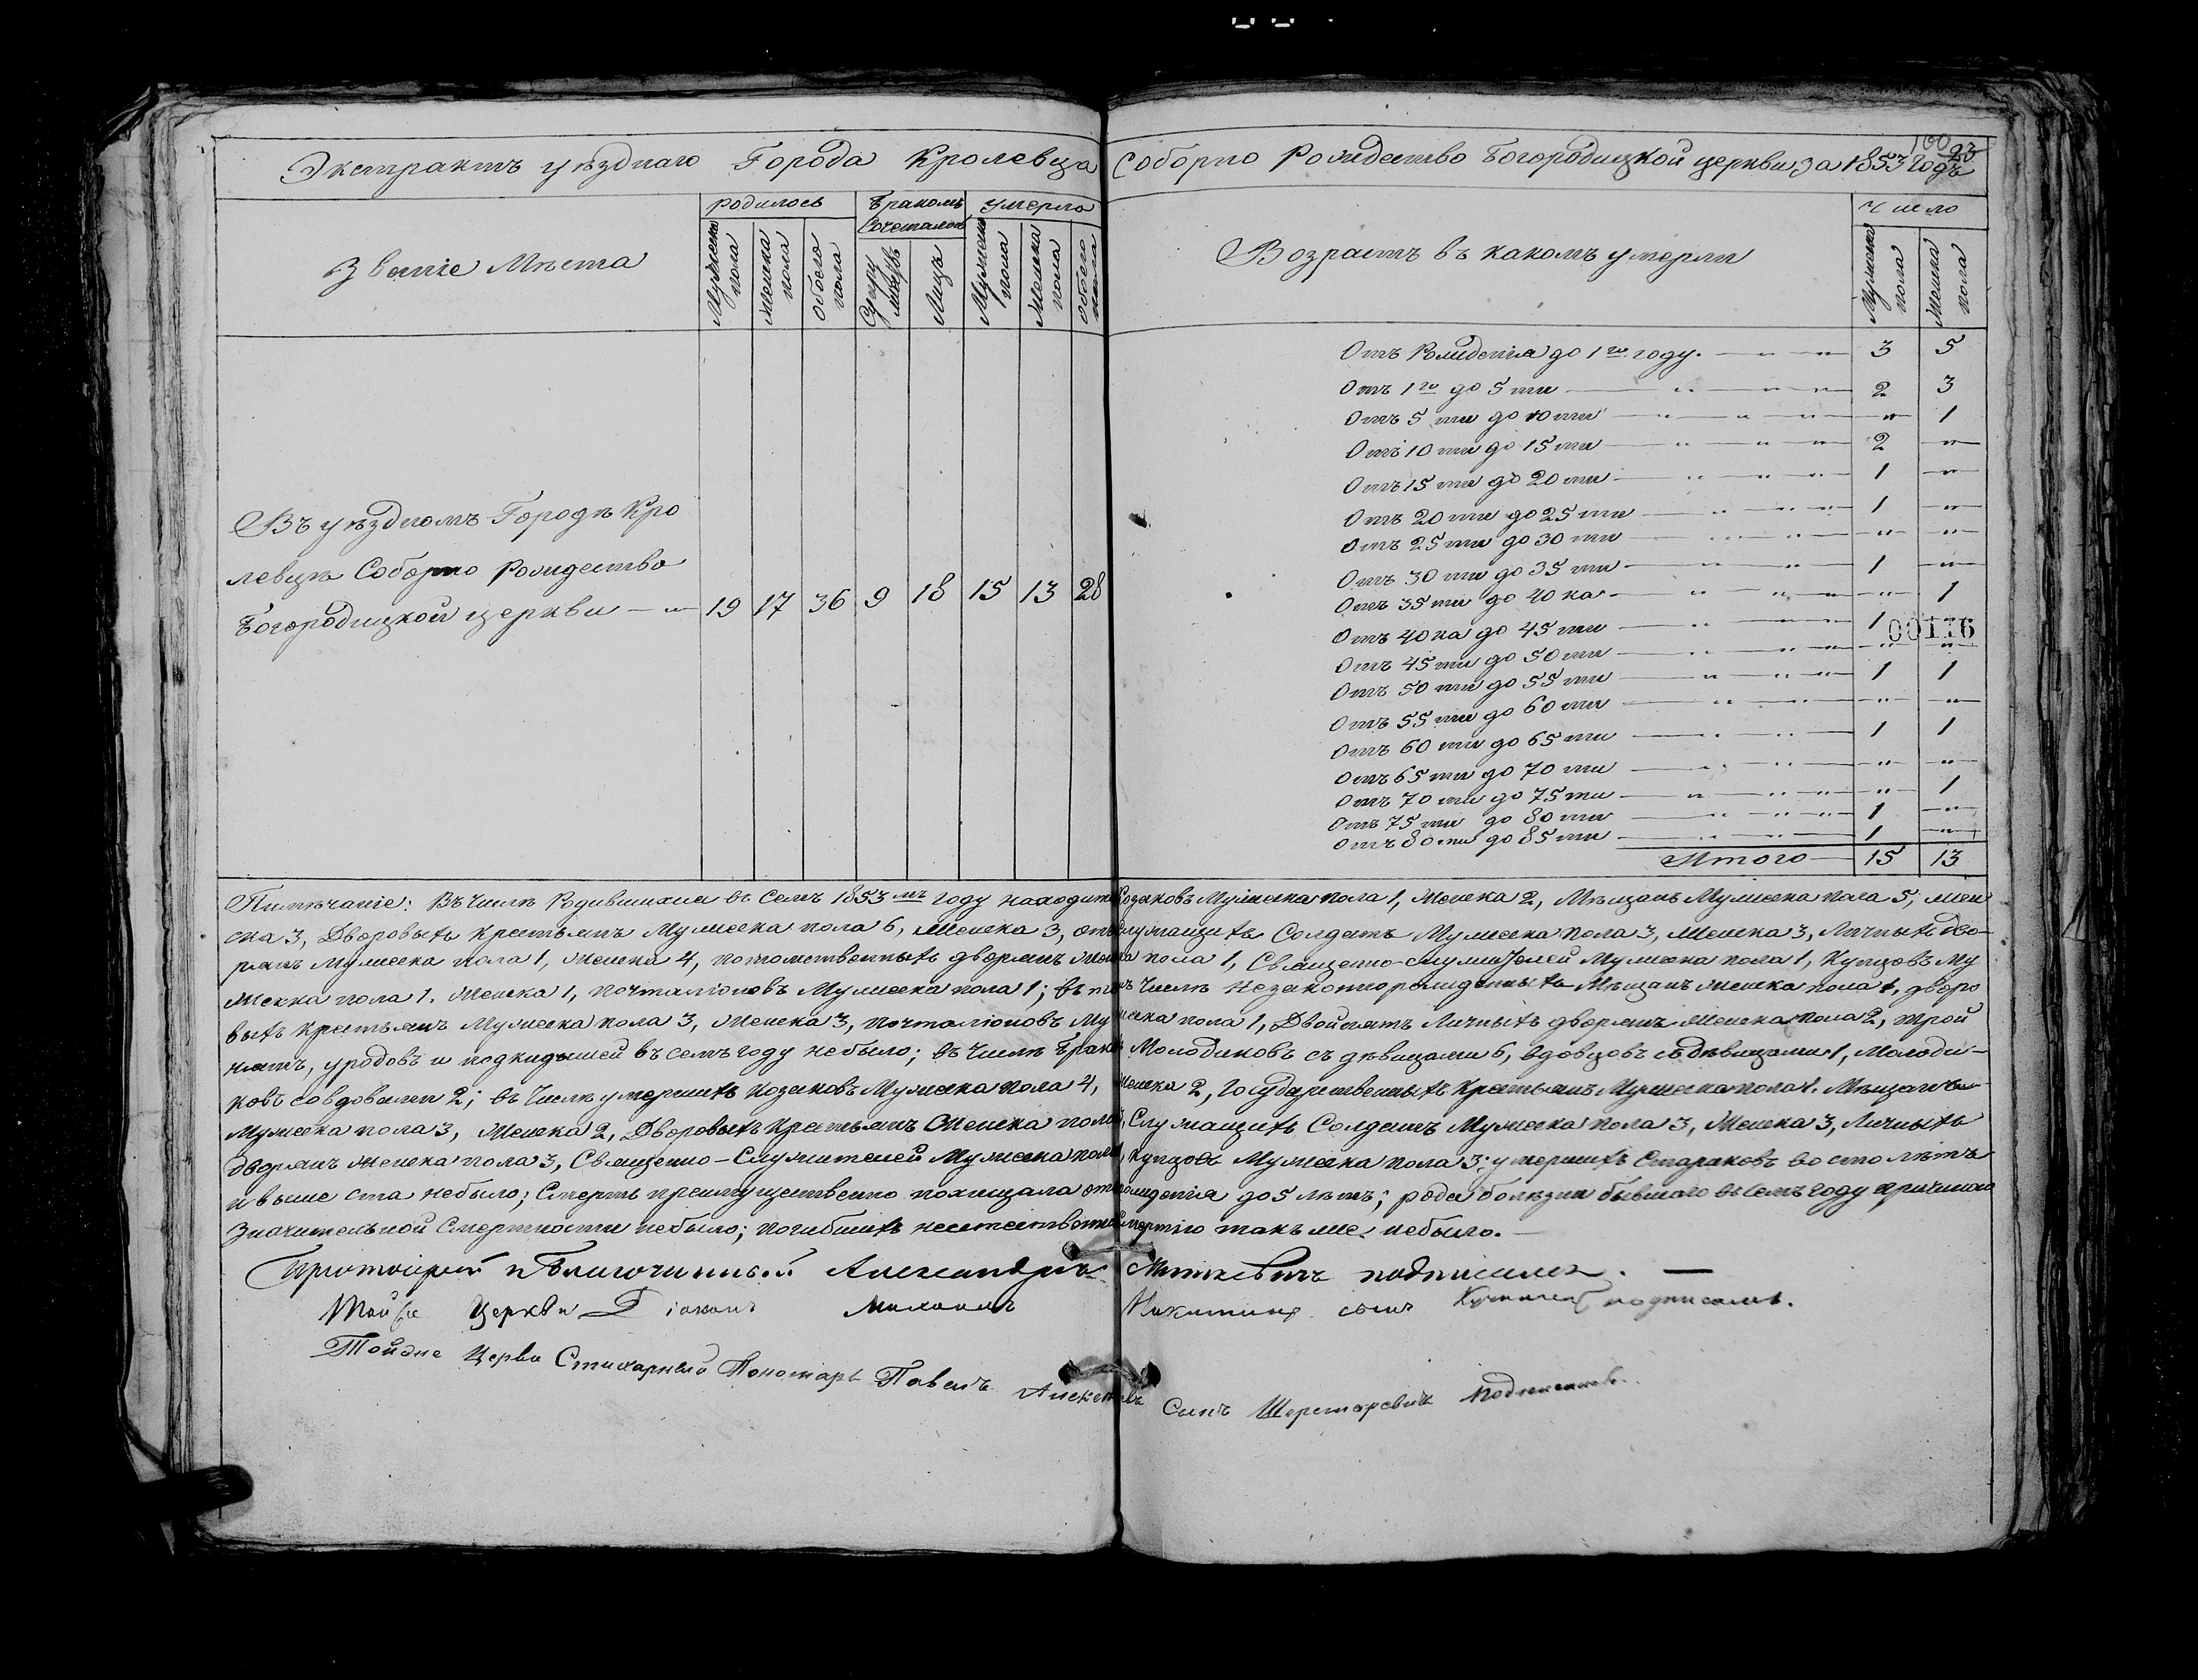 Экстрактъ уѣзднаго Города Кролевца Соборно Рождество Богородицкой церкви, за 1853 годъ
Званіе Мѣста
родилось
Бракомъ Сочеталось
умерло
Мужеска пола
Женска пола
обоего пола
Супружествъ
Лицъ
Мужеска пола
Женска пола
обоего пола
Въ уѣздномъ Городѣ Кро
левцѣ Соборно Рождество
Богородицкой церкви — 19 17 36 9 18 15 13 28
Возрастъ въ какомъ умерли
Число
Мужеска пола
Женска пола
Отъ Рожденія до 1го году. — 3 5
Отъ 1го до 5 ти — 2 3
Отъ 5 ти до 10 ти — „ 1
Отъ 10 ти до 15 ти — 2 „
Отъ 15 ти до 20 ти — 1 „
Отъ 20 ти до 25 ти — 1 „
Отъ 25 ти до 30 ти — „ „
Отъ 30 ти до 35 ти — 1 „
Отъ 35 ти до 40 ка — „ 1
Отъ 40 ка до 45 ти — 1
00176
Отъ 45 ти до 50 ти — „ „
Отъ 50 ти до 55 ти — 1 1
Отъ 55 ти до 60 ти — „ „
Отъ 60 ти до 65 ти — 1 1
Отъ 65 ти до 70 ти — „ „
Отъ 70 ти до 75 ти — „ 1
Отъ 75 ти до 80 ти — 1 „
Отъ 80 ти до 85 ти — 1 „
Итого — 15 13
Пимѣчаніе: Въ числѣ Родившихся въ Семъ 1853мъ году находится Козаковъ Мужеска пола 1, Женска 2, Мѣщанъ Мужеска пола 5, жен
ска 3, Дворовыхъ Крестьянъ Мужеска пола 6, Женска 3, служащихъ Солдатъ Мужеска пола 3, Женска 3, Личныхъ дво-
рянъ Мужеска пола 1, Женска 4, потомственныхъ дворянъ Женска пола 1, Священно-служителей Мужеска пола 1, Купцовъ Му
жеска пола 1. Женска 1, почталіоновъ Мужеска пола 1; въ томъ числѣ незаконнорожденныхъ Мѣщанъ женска пола 1, дворо
выхъ Крестьянъ Мужеска пола 3, Женска 3, почталіоновъ Мужеска пола 1, Двойнятъ Личныхъ дворянъ Женска пола 2, трой
нятъ, уродовъ и подкидышей въ семъ году небыло; въ числѣ Браковъ Молодиковъ съ дѣвицами 6, вдовцовъ съ дѣвицами 1, Молоди-
ковъ совдовами 2; въ числѣ умершихъ Козаковъ Мужеска пола 4, Женска 2, Государственныхъ Крестьянъ Мужеска пола 1. Мѣщанъ
Мужеска пола 3, Женска 2, Дворовыхъ Крестьянъ Женска пола, Служащихъ Солдатъ Мужеска пола 3, Женска 3, Личныхъ
дворянъ Женска пола 3, Священно-Служителей Мужеска пола, Купцовъ Мужеска пола 3; умершихъ Стариковъ во сто лѣтъ
и выше ста небыло; Смерть преимущественно похищала отъ рожденія до 5 лѣтъ; рода болѣзни бывшаго въ семъ году причиною
значительной Смертности небыло; погибшихъ неестественною смертію такъ же небыло. —
Протоіерей и Благочинный Александръ Миткевичъ подписался. —
Той же Церкви Діаконъ Никитинъ сынъ подписалъ.
Тойже Церкви Стихарный Пономарь Павелъ Алексеевъ Сынъ Шереморевичъ Подписался.